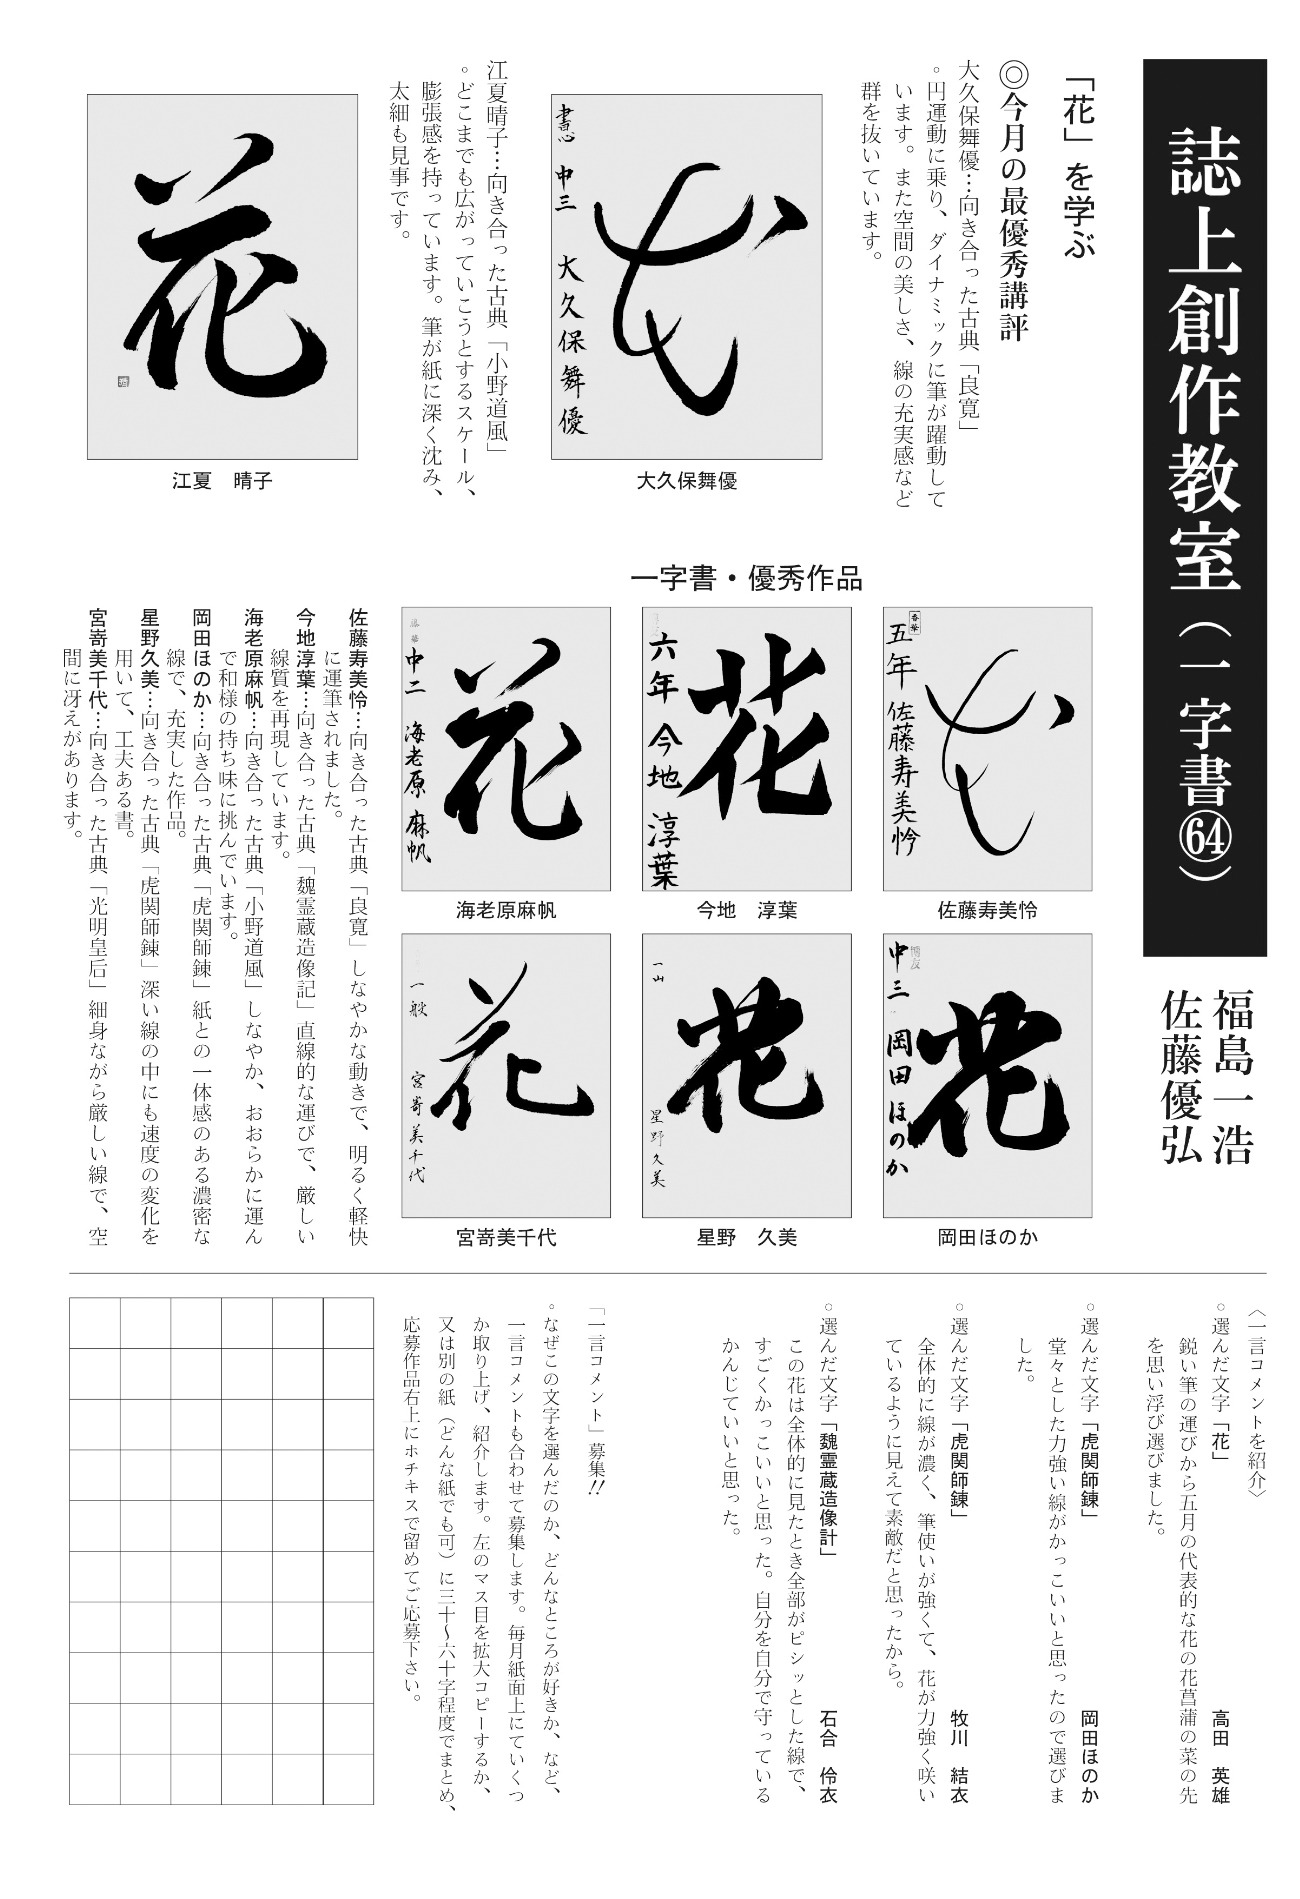 誌上創作教室（一字書㊿+14）
福島一浩
佐藤優弘
「花」を学ぶ
◎今月の最優秀講評
大久保舞優…向き合った古典「良寛」
。円運動に乗り、ダイナミックに筆が躍動して
います。また空間の美しさ、線の充実感など
群を抜いています。
書心 中三 大久保舞優
大久保舞優
江夏晴子…向き合った古典「小野道風」
。どこまでも広がっていこうとするスケール、
膨張感を持っています。筆が紙に深く沈み、
太細も見事です。
花
江夏　晴子
一字書・優秀作品
五年 佐藤寿美怜
佐藤寿美怜
花
六年 今地 淳葉
今地　淳葉
花
中二 海老原 麻帆
海老原麻帆
花
中三 岡田 ほのか
岡田ほのか
花
星野久美
星野　久美
花
一般 宮嵜美千代
宮嵜美千代
佐藤寿美怜…向き合った古典「良寛」しなやかな動きで、明るく軽快
に運筆されました。
今地淳葉…向き合った古典「魏霊蔵造像記」直線的な運びで、厳しい
線質を再現しています。
海老原麻帆…向き合った古典「小野道風」しなやか、おおらかに運ん
で和様の持ち味に挑んでいます。
岡田ほのか…向き合った古典「虎関師錬」紙との一体感のある濃密な
線で、充実した作品。
星野久美…向き合った古典「虎関師錬」深い線の中にも速度の変化を
用いて、工夫ある書。
宮嵜美千代…向き合った古典「光明皇后」細身ながら厳しい線で、空
間に冴えがあります。
〈一言コメントを紹介〉
。選んだ文字「花」　高田　英雄
鋭い筆の運びから五月の代表的な花の花菖蒲の菜の先
を思い浮び選びました。
。選んだ文字「虎関師錬」　岡田ほのか
堂々とした力強い線がかっこいいと思ったので選びま
した。
。選んだ文字「虎関師錬」　牧川　結衣
全体的に線が濃く、筆使いが強くて、花が力強く咲い
ているように見えて素敵だと思ったから。
。選んだ文字「魏霊蔵造像計」　石合　伶衣
この花は全体的に見たとき全部がピシッとした線で、
すごくかっこいいと思った。自分を自分で守っている
かんじていいと思った。
「一言コメント」募集!!
。なぜこの文字を選んだのか、どんなところが好きか、など、
一言コメントも合わせて募集します。毎月紙面上にていくつ
か取り上げ、紹介します。左のマス目を拡大コピーするか、
又は別の紙（どんな紙でも可）に三十〜六十字程度でまとめ、
応募作品右上にホチキスで留めてご応募下さい。